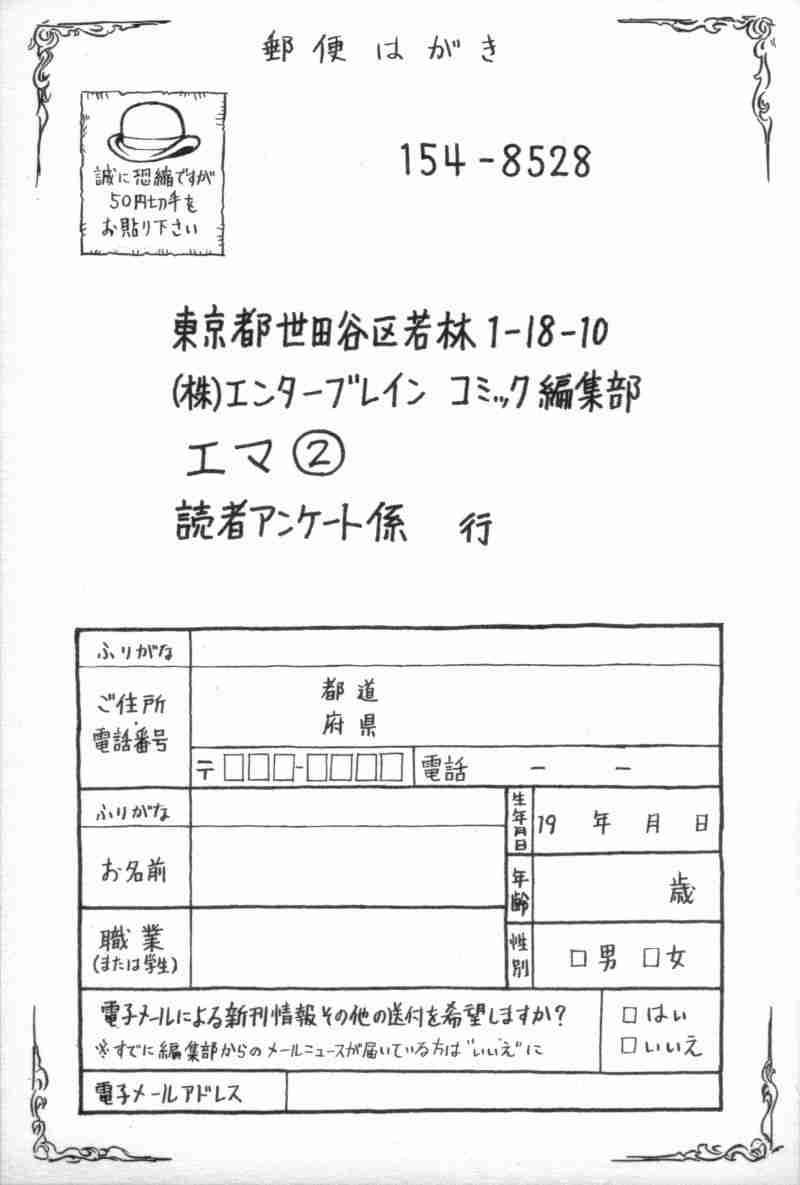 郵便はがき
誠に恐縮ですが
50円切手を
お貼り下さい
154-8528
東京都世田谷区若林1-18-10
(株)エンターブレイン コミック編集部
エマ②
読者アンケート係 行
ふりがな
ご住所
電話番号
都道
府県
〒□□□-□□□□ 電話 - -
ふりがな
お名前
生年月日 19 年 月 日
年齢 歳
職業
(または学生)
性別 □男 □女
電子メールによる新刊情報その他の送付を希望しますか?
※すでに編集部からのメールニュースが届いている方は"いいえ"に
□はい
□いいえ
電子メールアドレス